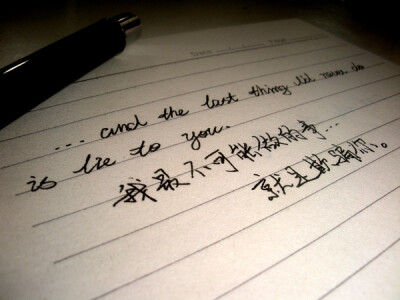 ... and the last thing I'll ever do
is lie to you.
我最不可能做的事...
就是欺骗你。